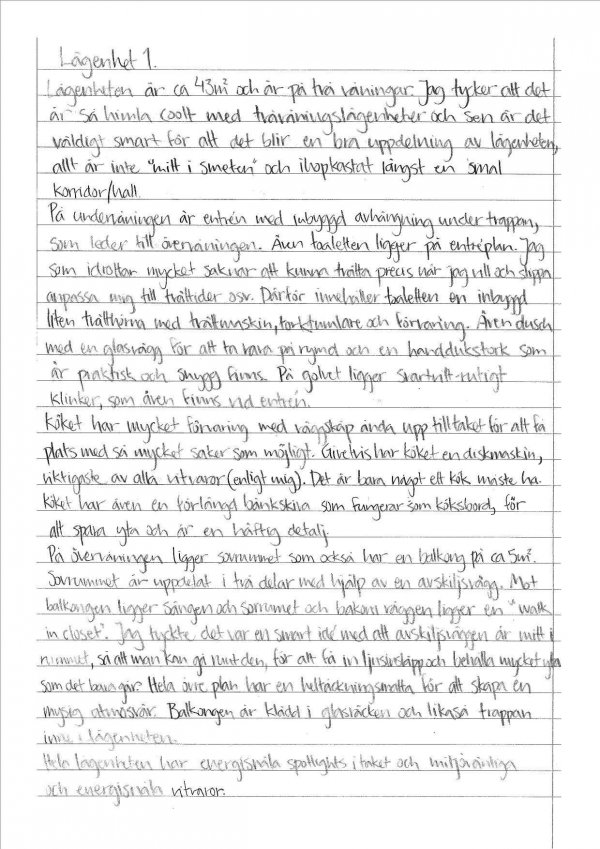 Lägenhet 1.
Lägenheten är ca 43m² och är på två våningar. Jag tycker att det
är så himla coolt med tvåvåningslägenheter och sen är det
väldigt smart för att det blir en bra uppdelning av lägenheten,
allt är inte "mitt i smeten" och ihopkastat längst en smal
korridor/hall.
På undervåningen är entrén med inbyggd avhängning under trappan,
som leder till övervåningen. Även toaletten ligger på entréplan. Jag
som idrottar mycket saknar att kunna tvätta precis när jag vill och slippa
anpassa mig till tvättider osv. Därför innehåller toaletten en inbyggd
liten tvätthörna med tvättmaskin, torktumlare och förvaring. Även dusch
med en glasvägg för att ta vara på rymd och en handdukstork som
är praktisk och snygg finns. På golvet ligger svartvitt-rutigt
klinker, som även finns vid entrén.
Köket har mycket förvaring med väggskåp ända upp till taket för att få
plats med så mycket saker som möjligt. Givetvis har köket en diskmaskin,
viktigaste av alla vitvaror (enligt mig). Det är bara något ett kök måste ha.
Köket har även en förlängd bänkskiva som fungerar som köksbord, för
att spara yta och är en häftig detalj.
På övervåningen ligger sovrummet som också har en balkong på ca 5m².
Sovrummet är uppdelat i två delar med hjälp av en avskiljsvägg. Mot
balkongen ligger sängen och sovrumet och bakom väggen ligger en "walk
in closet". Jag tyckte det var en smart idé med att avskiljsväggen är mitt i
rummet, så att man kan gå runt den, för att få in ljusinsläpp och behålla mycket yta
som det bara går. Hela övre plan har en heltäckningsmatta för att skapa en
mysig atmosvär. Balkongen är klädd i glasräcken och likaså trappan
inne i lägenheten.
Hela lägenheten har energisnåla spotlights i taket och miljövänliga
och energisnåla vitvaror.